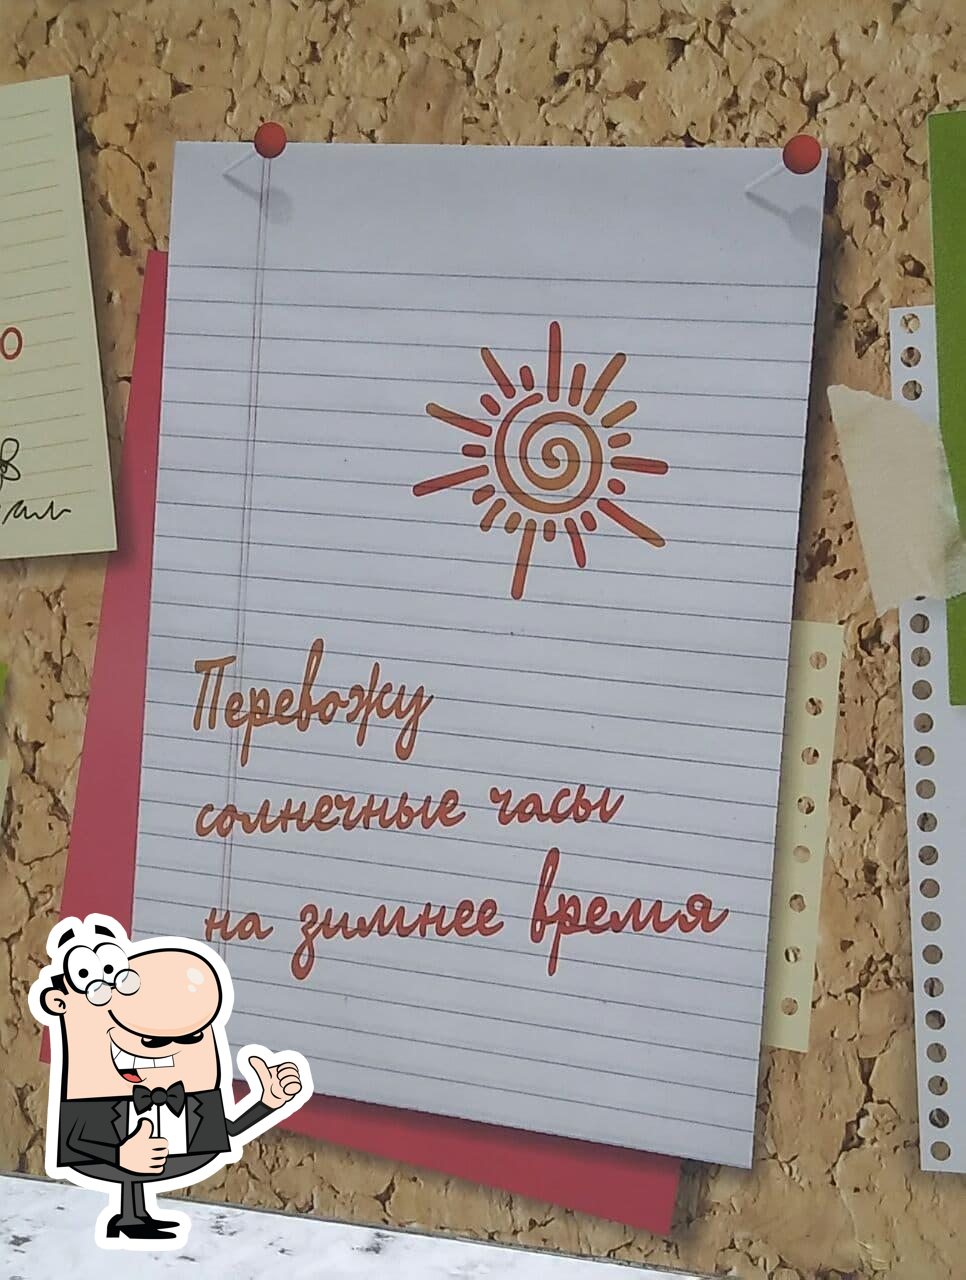 Перевожу
солнечные часы
на зимнее время